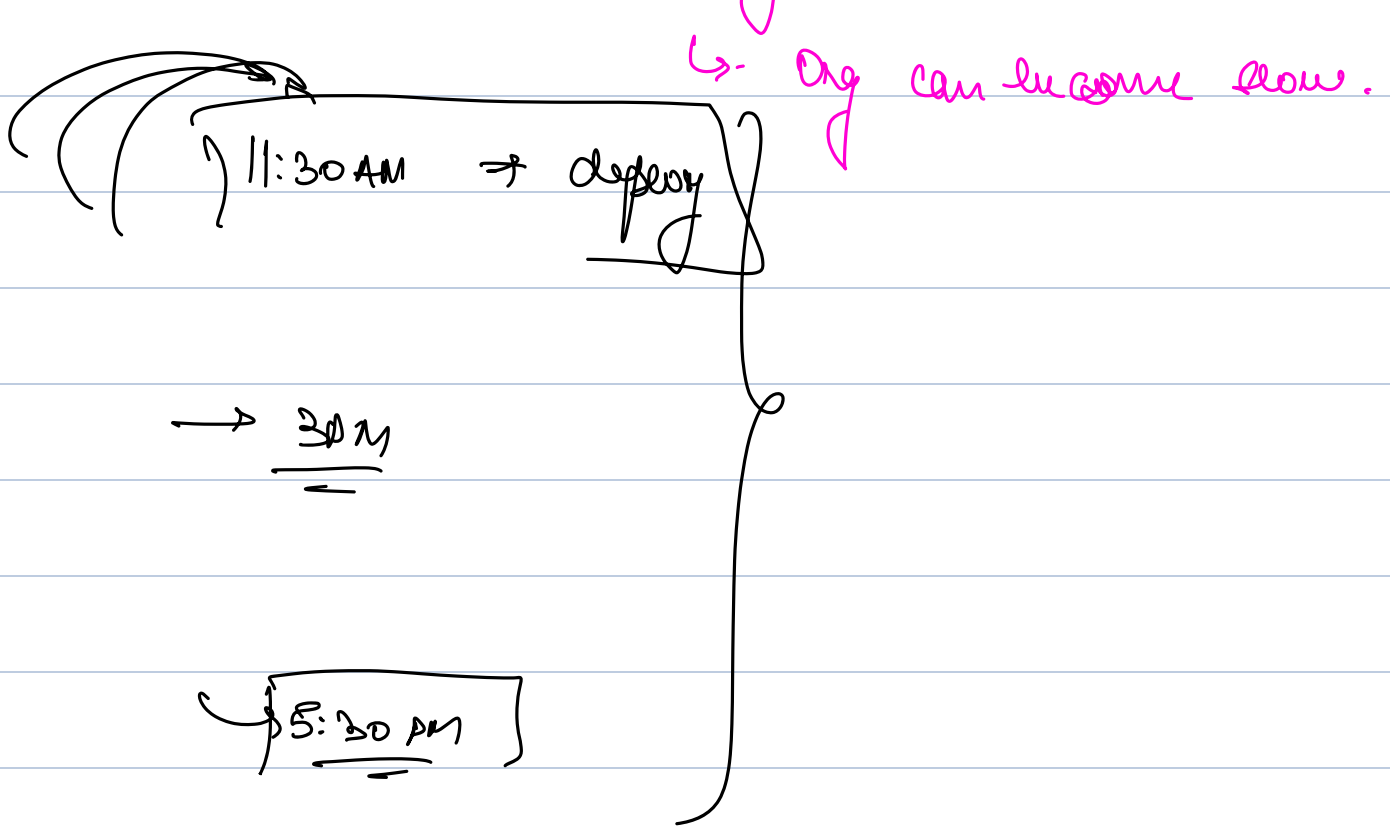 ↳ Org can become slow.
11:30 AM → deploy
→ 30M
5:30 PM